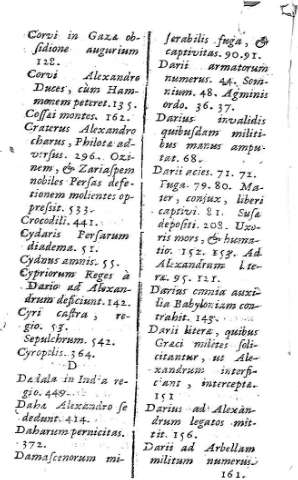 Corvi in Gaza ob-
sidione augurium
128.
Corvi Alexandro
Duces, cùm Ham-
monem peteret. 135.
Cossæi montes. 162.
Craterus Alexandro
charus, Philotæ ad-
versus. 296. Ozi-
nem, & Zariaspem
nobiles Persas defe-
tionem molientes op-
pressit. 533.
Crocodili. 441.
Cydaris Persarum
diadema. 51.
Cydnus amnis. 55.
Cypriorum Reges à
Dario ad Alexan-
drum deficiunt. 142.
Cyri castra, re-
gio. 53.
Sepulchrum. 542.
Cyropolis. 364.
D
Dædala in India re-
gio. 449.
Dahæ Alexandro se
dedunt. 414.
Daharum pernicitas.
372.
Damascenorum mi-
serabilis fuga, &
captivitas. 90. 91.
Darii armatorum
numerus. 44. Som-
nium. 48. Agminis
ordo. 36. 37.
Darius invalidis
quibusdam militi-
bus manus ampu-
tat. 68.
Darii acies. 71. 72.
Fuga. 79. 80. Ma-
ter, conjux, liberi
captivi. 81. Susæ
depositi. 208. Uxo-
ris mors, & huma-
tio. 152. 153. Ad
Alexandrum lite-
ræ. 95. 121.
Darius omnia auxi-
lia Babyloniam con-
trahit. 143.
Darii literæ, quibus
Græci milites soli-
citantur, ut Ale-
xandrum interfi-
ciant, interceptæ.
151
Darius ad Alexan-
drum legatos mit-
tit. 156.
Darii ad Arbellam
militum numerus.
161.